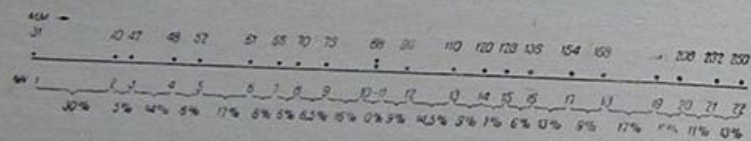 31 40 42 48 52 61 65 70 75 88 96 110 120 128 136 154 168 208 232 250
1 2 3 4 5 6 7 8 9 10 11 12 13 14 15 16 17 18 19 20 21 22
30% 5% 14% 8% 17% 6% 6,5% 16% 0% 9% 14,5% 9% 7% 6% 13% 9% 17% 11% 13%